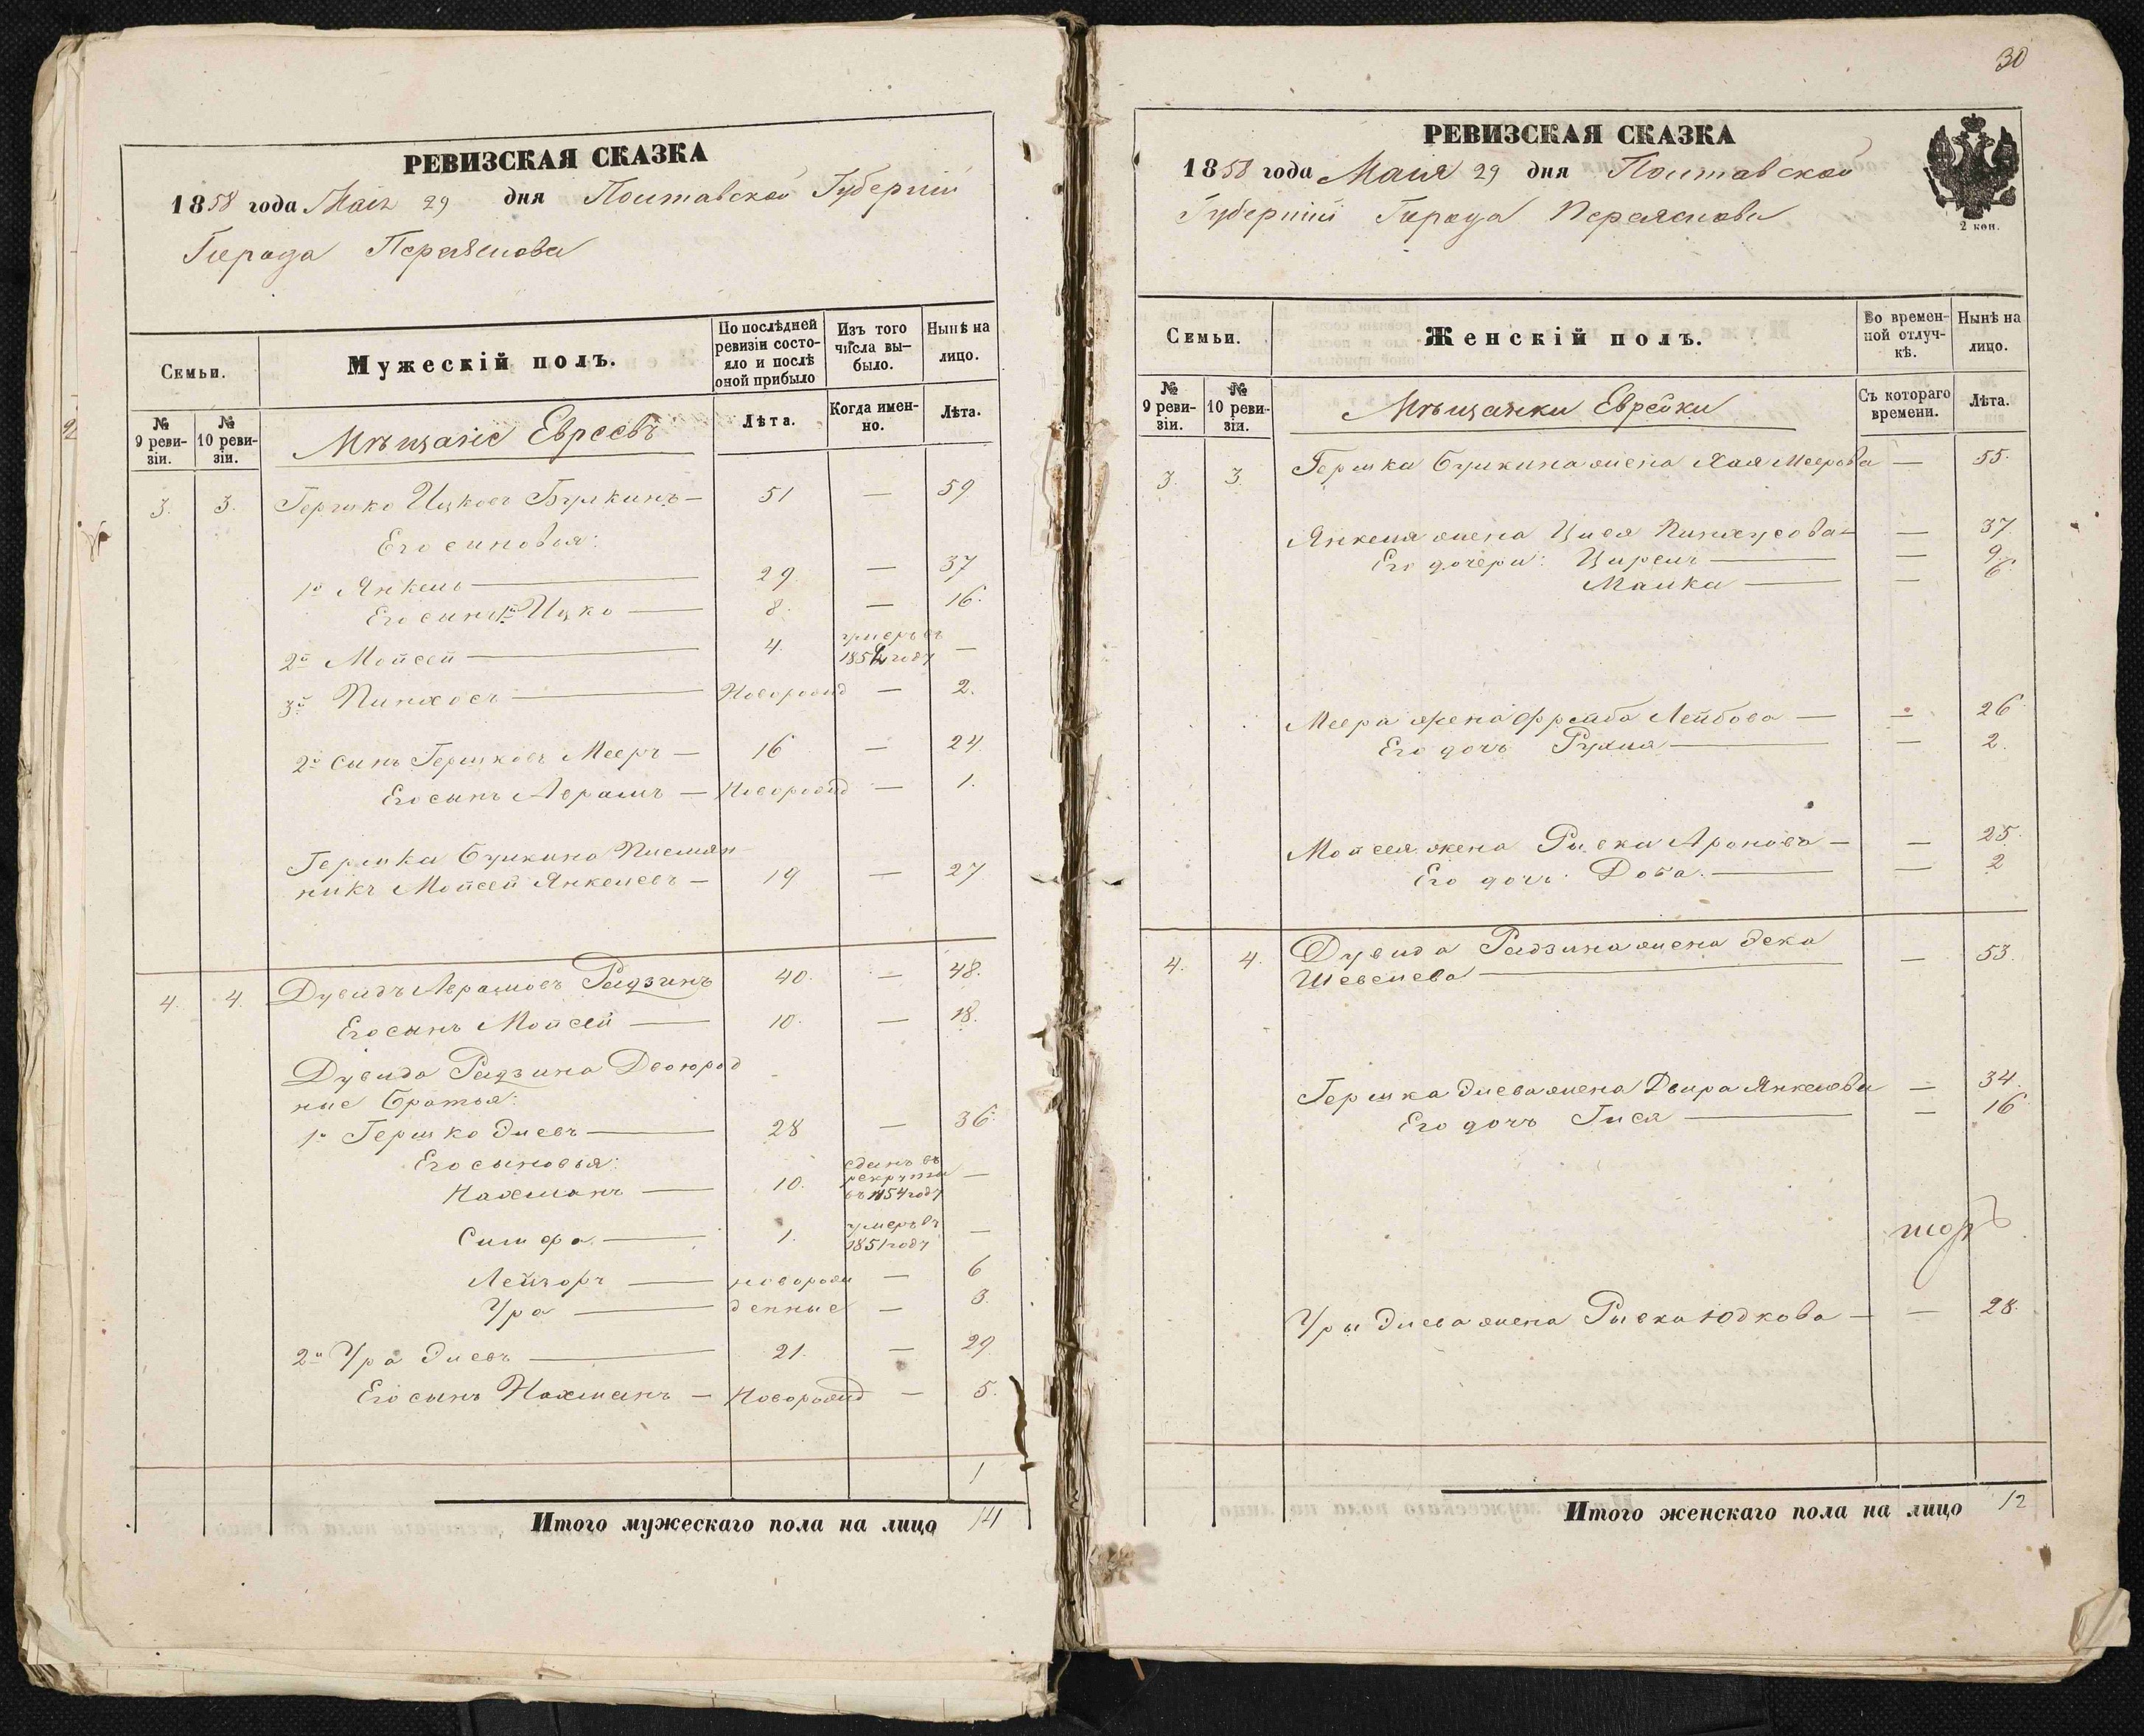 РЕВИЗСКАЯ СКАЗКА
1858 года Маія 29 дня Полтавской Губерніи
Города Переяслова
Семьи.
Мужескій полъ.
По послѣдней ревизіи состо-
яло и послѣ
оной прибыло
Изъ того
числа вы-
было.
Нынѣ на
лицо.
№
9 реви-
зіи.
№
10 реви-
зіи.
Мѣщане Евреевъ
Лѣта.
Когда имен-
но.
Лѣта.
3. 3. Гершко Ицковъ Булкинъ — 51 — 59
Его сыновья:
1й Янкель — 29 — 37
Его сынъ 1й Ицко — 8. — 16.
2й Мойсей — 4. умеръ въ
1852 году —
3й Пинхосъ — Новорожд — 2.
2й сынъ Гершковъ Мееръ — 16 — 24
Его сынъ Аврамъ — Новорожд — 1.
Гершка Булкина Племян-
никъ Мойсей Янкелевъ — 19 — 27
4. 4. Дувидъ Аврамовъ Радзинъ 40. — 48.
Его сынъ Мойсей — 10. — 18.
Дувида Радзина Двоюрод
ные Братья:
1й Гершко Диевъ — 28 — 36
Его сыновья:
Нахманъ — 10. сданъ въ
рекруты
въ 1854 году —
Симфа — 1. умеръ въ
1851 году —
Лейзоръ — новорож — 6
Ура — денные — 3.
2й Ура Диевъ — 21. — 29
Его сынъ Нахманъ — Новорожд — 5.
1
Итого мужескаго пола на лицо 14
30
РЕВИЗСКАЯ СКАЗКА
1858 года Маія 29 дня Полтавской
Губерніи Города Переяслова
2 коп.
Семьи.
Женскій полъ.
Во времен-
ной отлуч-
кѣ.
Нынѣ на
лицо.
№
9 реви-
зіи.
№
10 реви-
зіи.
Мѣщанки Еврейки
Съ котораго
времени.
Лѣта.
3. 3. Гершка Булкина жена Хая Меерова — 55.
Янкеля жена Цися Пинхусова — — 37
Его дочери: Цирель — — 9.
Малка — — 6.
Меера жена Фрейба Лейбова — — 26
Его дочь Рухля — — 2.
Мойсея жена Ривка Аронова — — 25.
Его дочь: Доба. — — 2
4. 4. Дувида Радзина жена Дека
Шевелева — — 53.
Гершка Диева жена Двира Янкелева — 34.
Его дочь Гися — — 16
Уры Диева жена Ривка Юдкова — — 28.
Итого женскаго пола на лицо 12